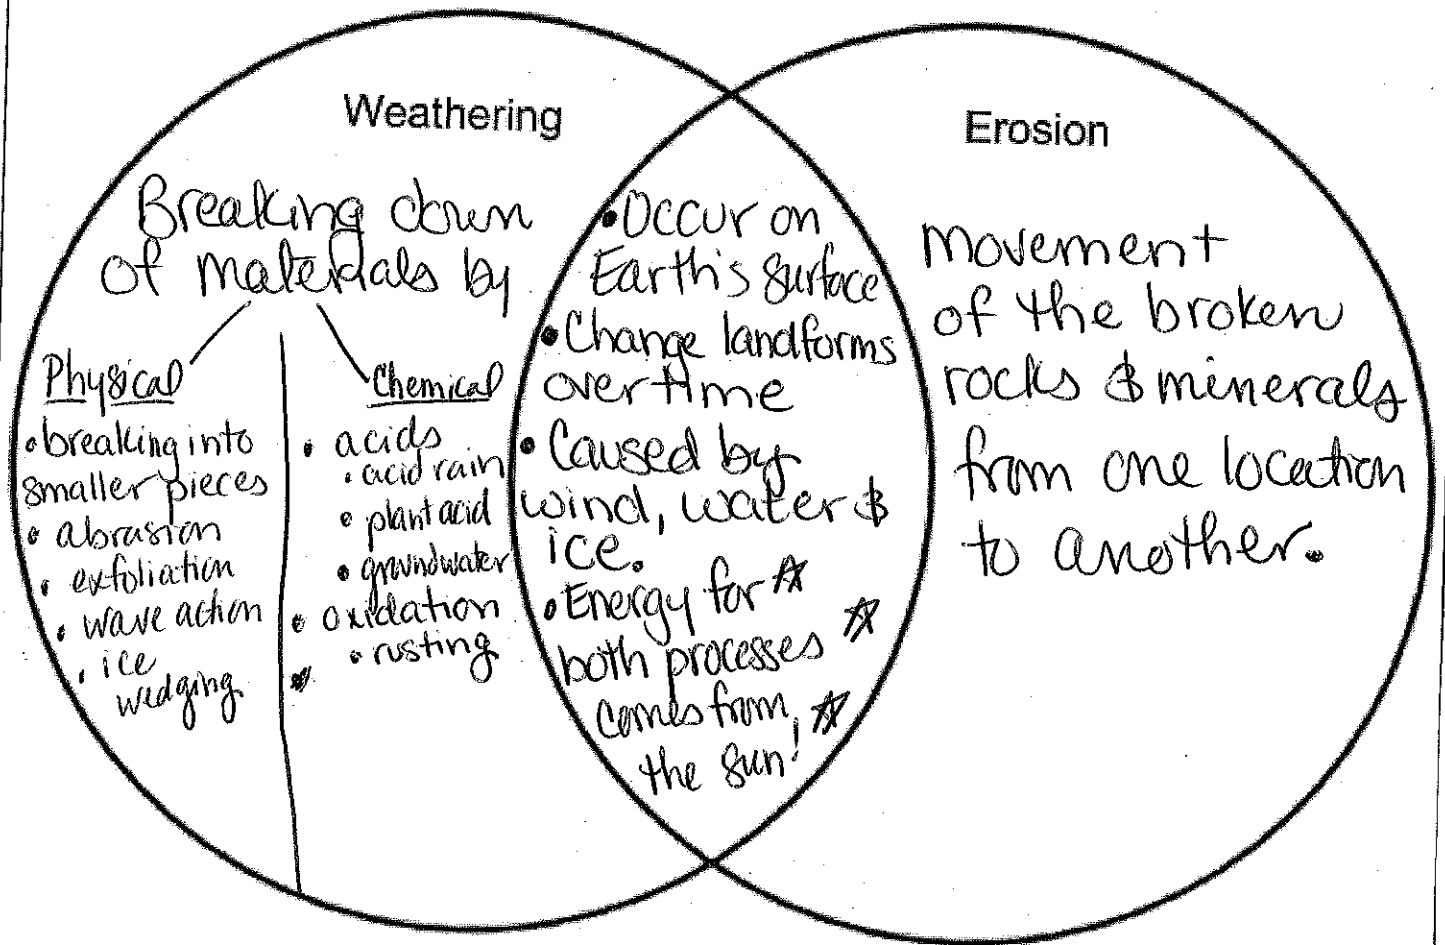 Weathering
Breaking down
of materials by
Physical
• breaking into
smaller pieces
• abrasion
• exfoliation
• wave action
• ice
wedging
Chemical
• acids
• acid rain
• plant acid
• groundwater
• oxidation
• rusting
• Occur on
Earth's surface
• Change landforms
over time
• Caused by
wind, water &
ice.
• Energy for ☆
both processes ☆
comes from ☆
the sun!
Erosion
Movement
of the broken
rocks & minerals
from one location
to another.